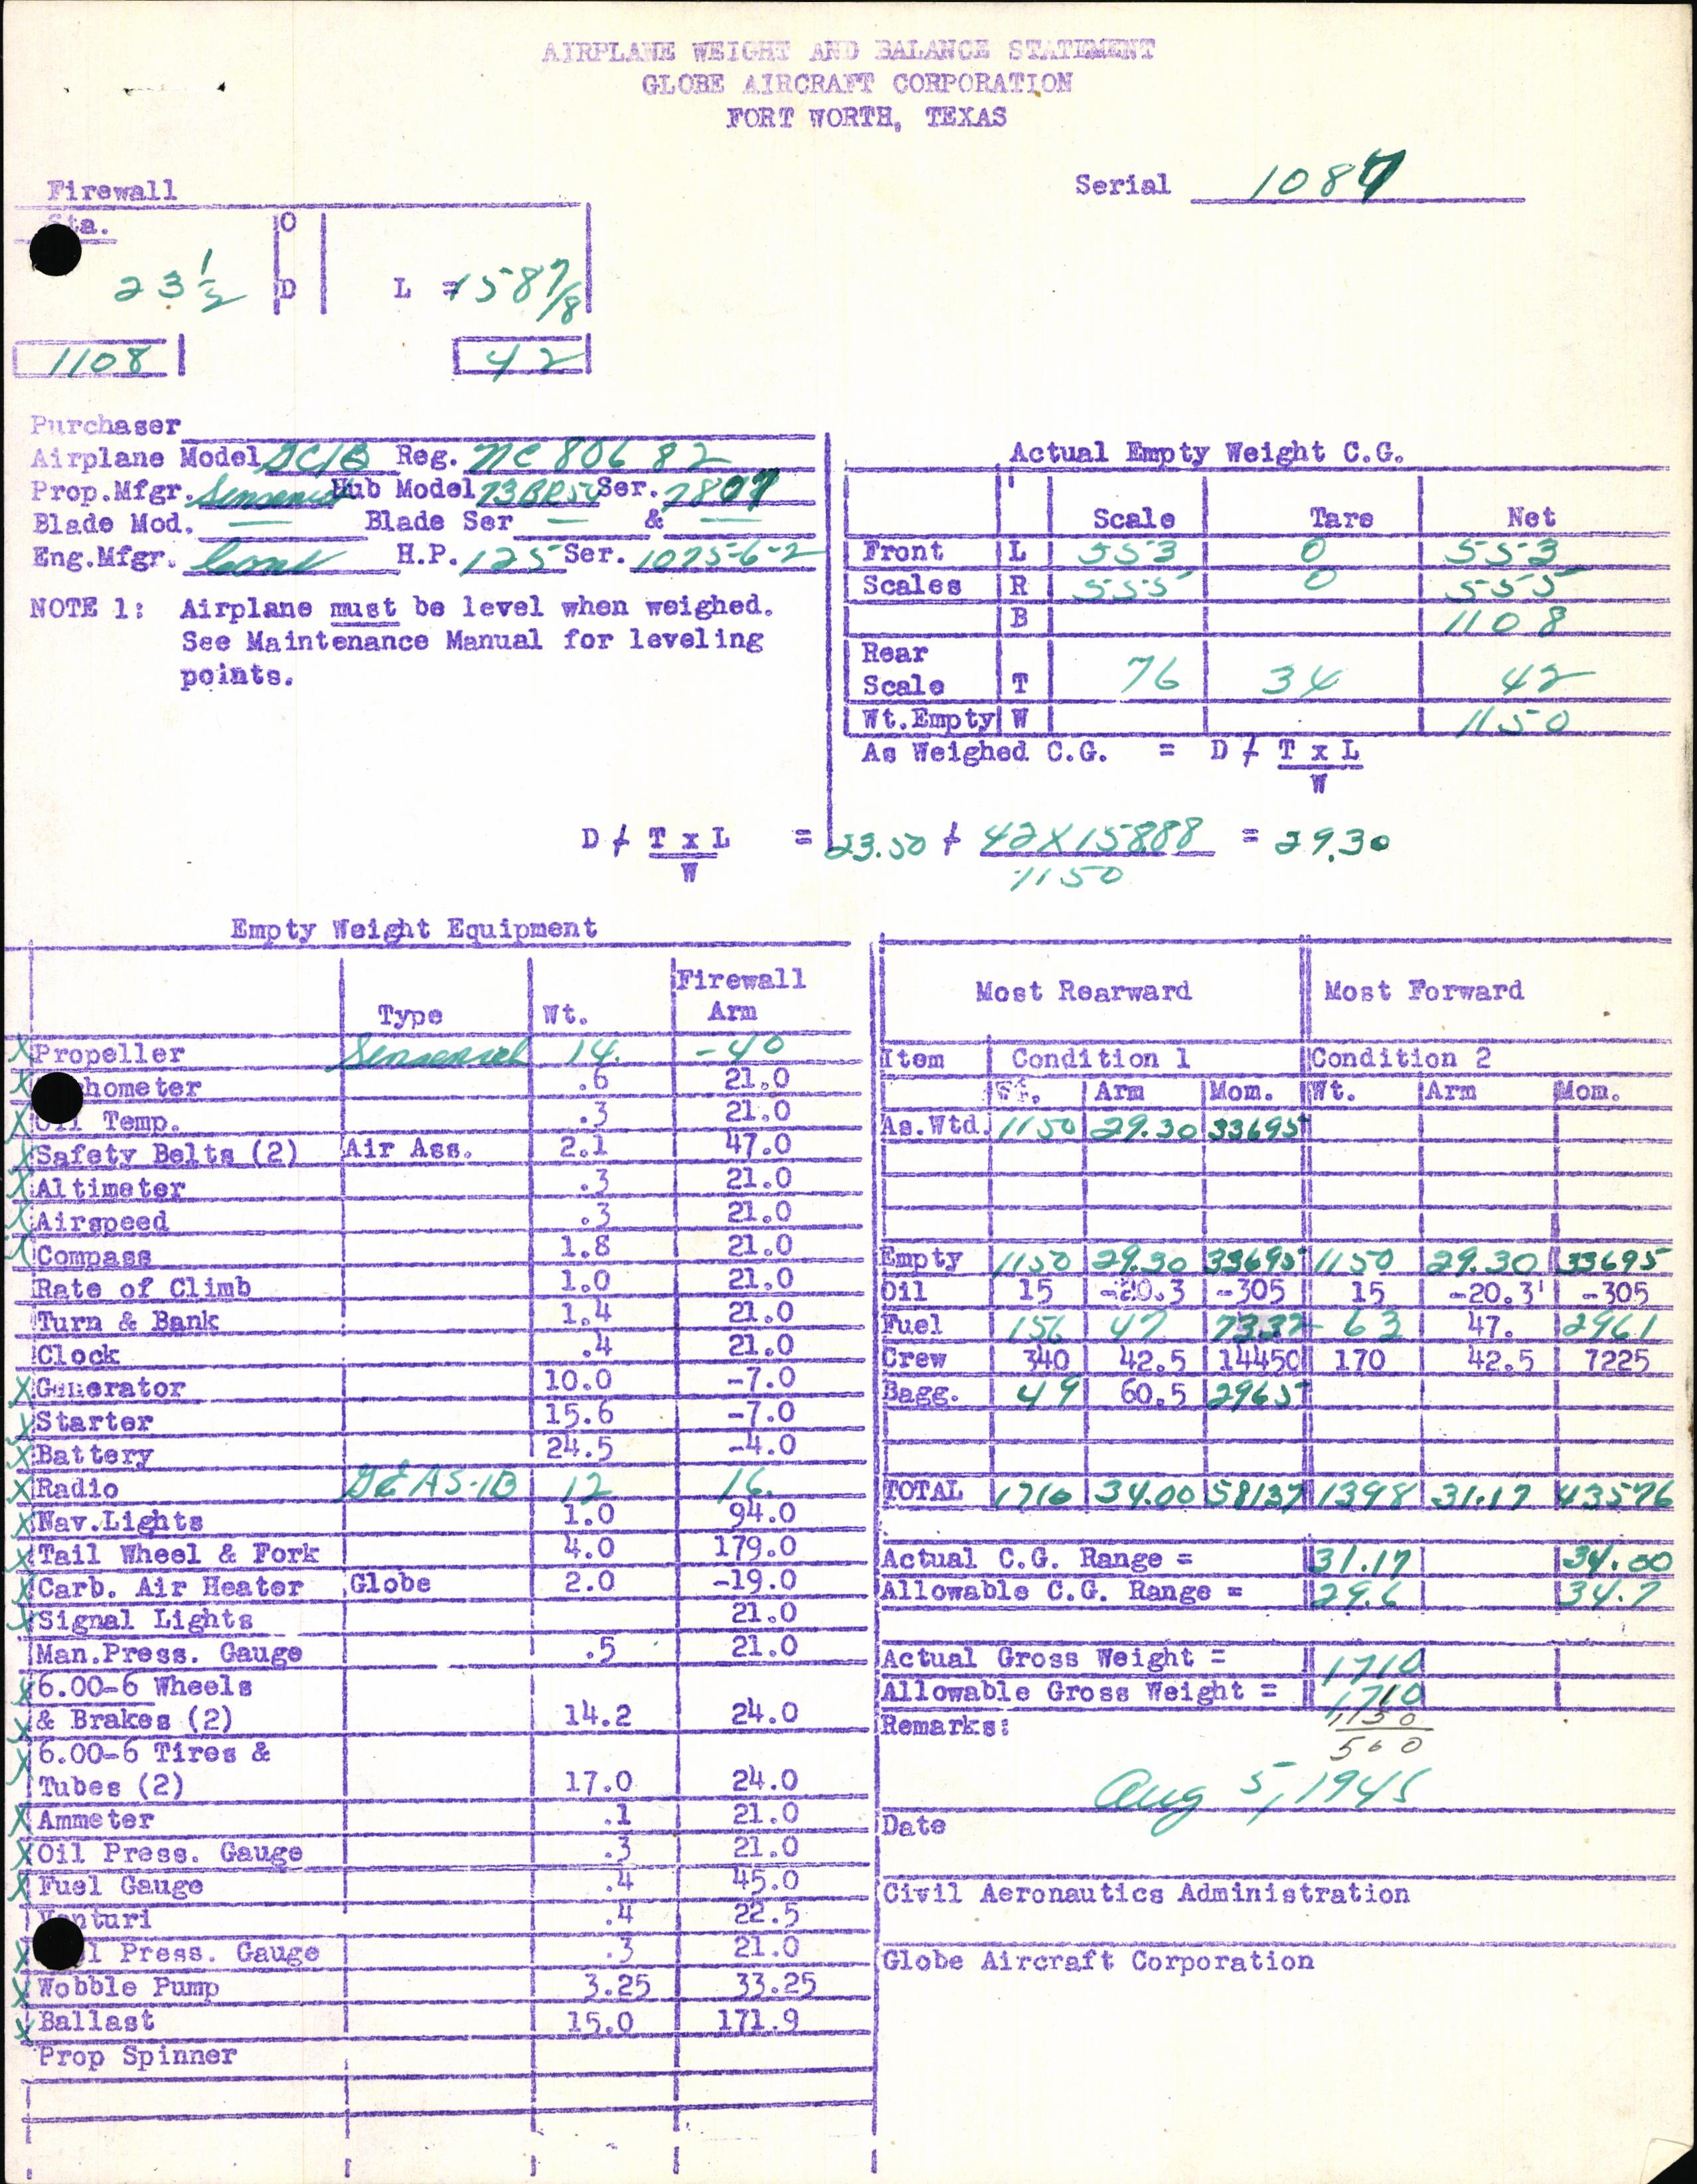 AIRPLANE WEIGHT AND BALANCE STATEMENT
GLOBE AIRCRAFT CORPORATION
FORT WORTH, TEXAS
Serial 1087
Firewall
Sta.
O
23 1/2 D L = 158 7/8
1108 42
Purchaser
Airplane Model GC1B Reg. NC 80682
Prop.Mfgr. Sensenich Hub Model 73BR50 Ser. 7807
Blade Mod. — Blade Ser — & —
Eng.Mfgr. Cont H.P. 125 Ser. 1075-6-2
NOTE 1: Airplane must be level when weighed.
See Maintenance Manual for leveling
points.
Actual Empty Weight C.G.
Scale Tare Net
Front L 553 0 553
Scales R 555 0 555
B 1108
Rear
Scale T 76 34 42
Wt.Empty W 1150
As Weighed C.G. = D + T x L
W
D + T x L = 23.50 + 42 X 158.88 = 29.30
W 1150
Empty Weight Equipment
Type Wt. Firewall Arm
X Propeller Sensenich 14. -40
X hometer .6 21.0
X Oil Temp. .3 21.0
X Safety Belts (2) Air Ass. 2.1 47.0
X Altimeter .3 21.0
X Airspeed .3 21.0
X Compass 1.8 21.0
Rate of Climb 1.0 21.0
Turn & Bank 1.4 21.0
Clock .4 21.0
X Generator 10.0 -7.0
X Starter 15.6 -7.0
X Battery 24.5 -4.0
X Radio GE AS-1B 12 16.
X Nav.Lights 1.0 94.0
X Tail Wheel & Fork 4.0 179.0
X Carb. Air Heater Globe 2.0 -19.0
X Signal Lights 21.0
Man.Press. Gauge .5 21.0
X 6.00-6 Wheels
X & Brakes (2) 14.2 24.0
X 6.00-6 Tires &
Tubes (2) 17.0 24.0
X Ammeter .1 21.0
X Oil Press. Gauge .3 21.0
X Fuel Gauge .4 45.0
Venturi .4 22.5
X l Press. Gauge .3 21.0
X Wobble Pump 3.25 33.25
X Ballast 15.0 171.9
Prop Spinner
Most Rearward Most Forward
Item Condition 1 Condition 2
Wt. Arm Mom. Wt. Arm Mom.
As.Wtd. 1150 29.30 33695
Empty 1150 29.30 33695 1150 29.30 33695
Oil 15 -20.3 -305 15 -20.3 -305
Fuel 156 47 7332 63 47. 2961
Crew 340 42.5 14450 170 42.5 7225
Bagg. 49 60.5 2965
TOTAL 1710 34.00 58137 1398 31.17 43576
Actual C.G. Range = 31.17 34.00
Allowable C.G. Range = 29.6 34.7
Actual Gross Weight = 1710
Allowable Gross Weight = 1710
Remarks: 1150
560
Aug 5, 1945
Date
Civil Aeronautics Administration
Globe Aircraft Corporation